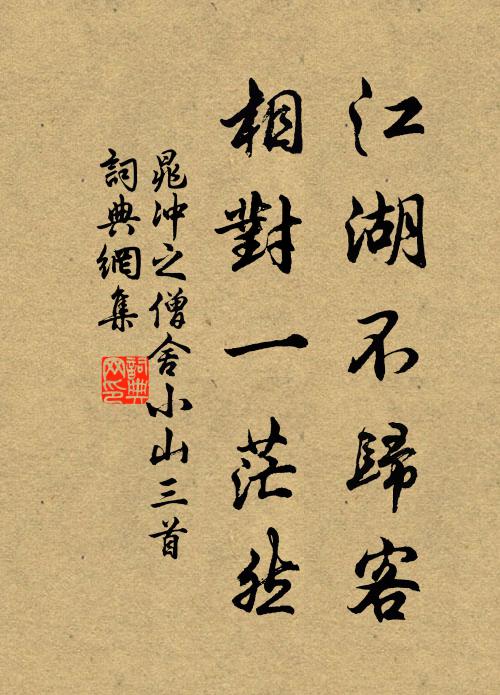 江湖不歸客
相對一茫然
晁沖之僧舍小山三首
詞典網集
詞典
网印